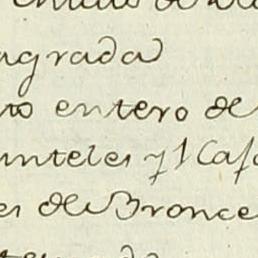 agrada
to entero de
unteles y 1 Caf
es de Bronce